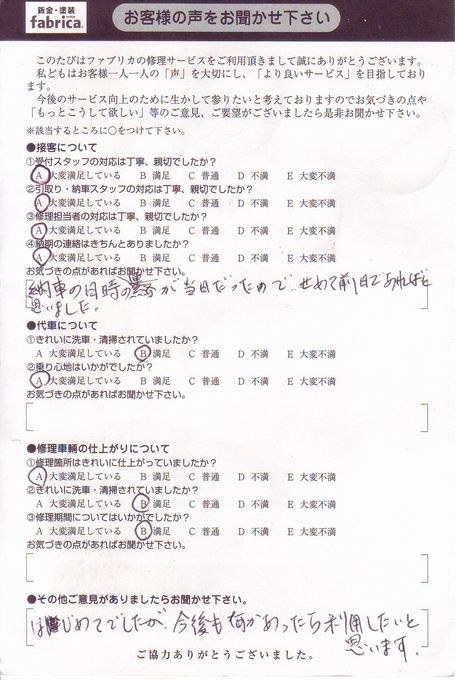 鈑金・塗装
fabrica.
お客様の声をお聞かせ下さい
このたびはファブリカの修理サービスをご利用頂きまして誠にありがとうございます。
私どもはお客様一人一人の「声」を大切にし、「より良いサービス」を目指しており
ます。
今後のサービス向上のために生かして参りたいと考えておりますのでお気づきの点や
「もっとこうして欲しい」等のご意見、ご要望がございましたら是非お聞かせ下さい。
※該当するところに○をつけて下さい。
●接客について
①受付スタッフの対応は丁寧、親切でしたか?
A 大変満足している B 満足 C 普通 D 不満 E 大変不満
②引取り・納車スタッフの対応は丁寧、親切でしたか?
A 大変満足している B 満足 C 普通 D 不満 E 大変不満
③修理担当者の対応は丁寧、親切でしたか?
A 大変満足している B 満足 C 普通 D 不満 E 大変不満
④納期の連絡はきちんとありましたか?
A 大変満足している B 満足 C 普通 D 不満 E 大変不満
お気づきの点があればお聞かせ下さい。
納車の日時の が当日だったので、せめて前日であればと
思いました。
●代車について
①きれいに洗車・清掃されていましたか?
A 大変満足している B 満足 C 普通 D 不満 E 大変不満
②乗り心地はいかがでしたか?
A 大変満足している B 満足 C 普通 D 不満 E 大変不満
お気づきの点があればお聞かせ下さい。
●修理車輌の仕上がりについて
①修理箇所はきれいに仕上がっていましたか?
A 大変満足している B 満足 C 普通 D 不満 E 大変不満
②きれいに洗車・清掃されていましたか?
A 大変満足している B 満足 C 普通 D 不満 E 大変不満
③修理期間についてはいかがでしたか?
A 大変満足している B 満足 C 普通 D 不満 E 大変不満
お気づきの点があればお聞かせ下さい。
●その他ご意見がありましたらお聞かせ下さい。
はじめてでしたが、今後も何かあったら利用したいと
思います。
ご協力ありがとうございました。